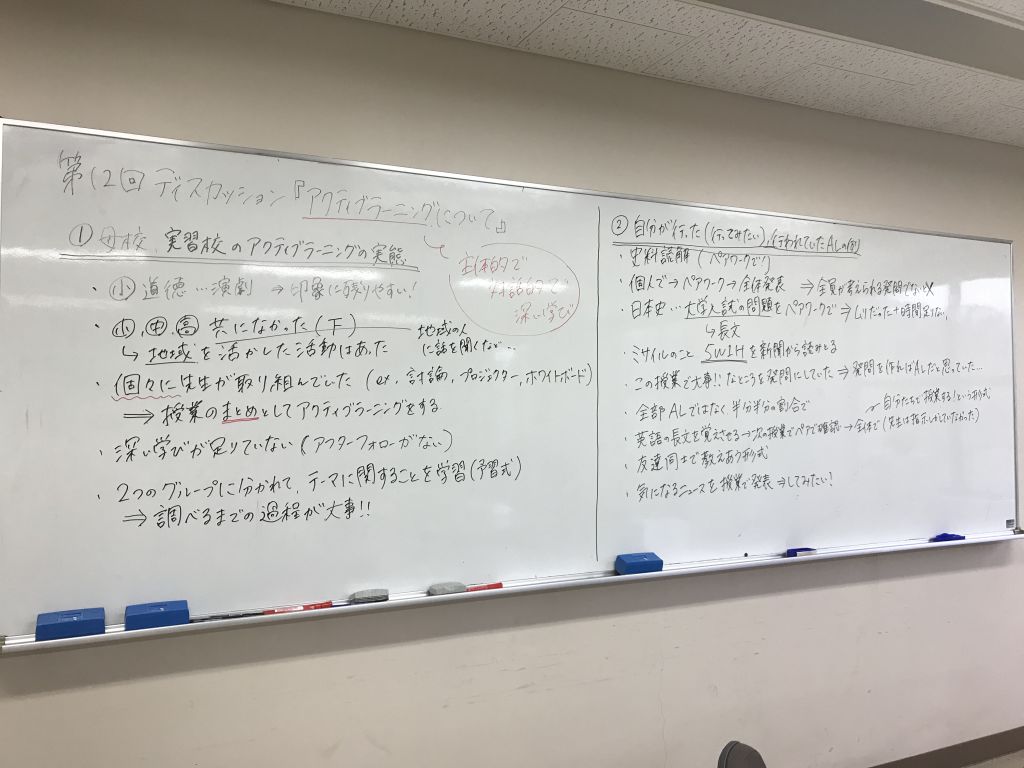 第12回 ディスカッション『アクティブラーニングについて』
主体的で
対話的で
深い学び
① 母校、実習校のアクティブラーニングの実態
・小 道徳…演劇 ⇒印象に残りやすい!
・小 中 高 共になかった(下)
↳ 地域を活かした活動はあった
地域の人
に話を聞くなど…
・個々に先生が取り組んでいた(ex. 討論, プロジェクター, ホワイトボード)
⇒ 授業のまとめとしてアクティブラーニングをする
・深い学びが足りていない(アフターフォローがない)
・2つのグループに分かれて、テーマに関することを学習(予習式)
⇒ 調べるまでの過程が大事!!
② 自分が行った(行ってみたい), 行われていたALの例
・史料読解(ペアワークで)
・個人で→ペアワーク→全体発表 ⇒全員が考えられる発問でないと×
・日本史…大学入試の問題をペアワークで⇒しりたった+時間足りない
↳長文
・ミサイルのこと 5W1Hを新聞から読みとる
・この授業で大事!!なところを発問にしていた⇒発問を作ればALだと思っていた…
・全部ALではなく半分半分の割合で
自分たちで授業する!という形式
・英語の長文を覚えさせる→次の授業でペアで確認→全体で(先生は指示しかしていなかった)
・友達同士で教えあう形式
・気になるニュースを授業で発表⇒してみたい!